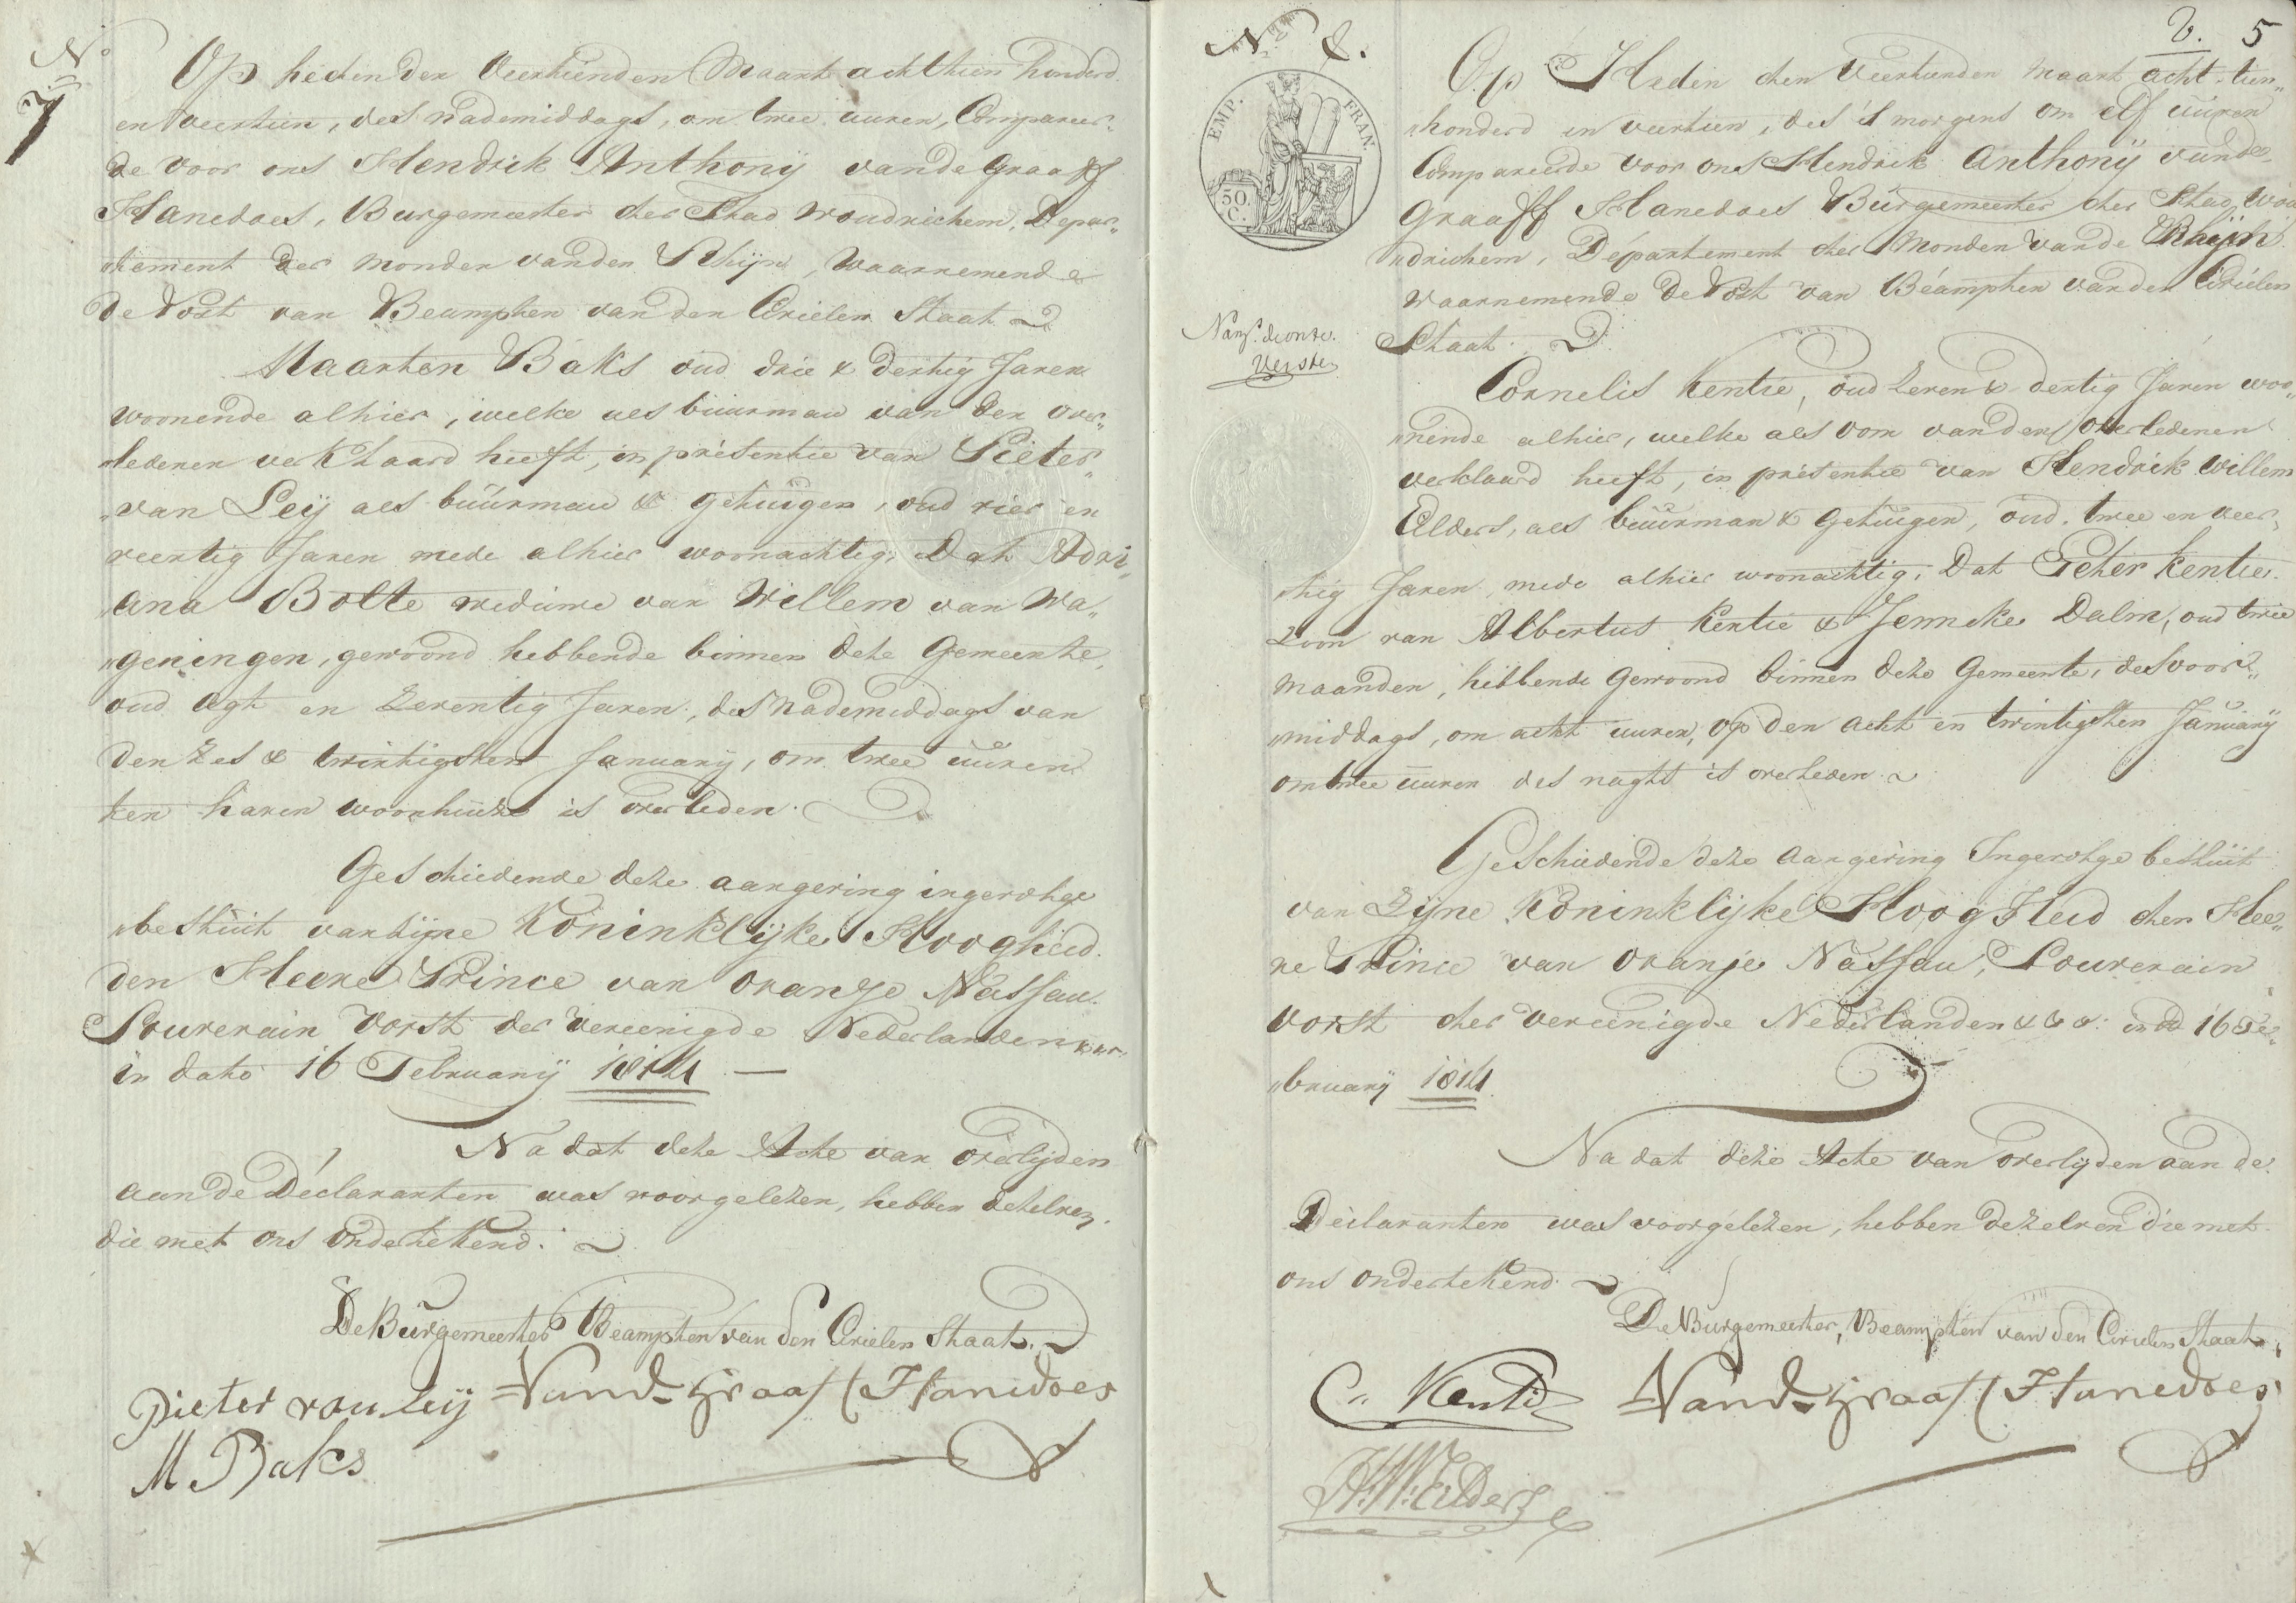 N°
7
Op heden den Veertienden Maart achttien honderd
en veertien, des nademiddags, om twee uuren, Comparеer„
de voor ons Hendrik Anthony vande Graaff
Hanedoes, Burgemeester der Stad Woudrichem, Depar„
„tement der Monden van den Rhijn, Waarnemende
de Post van Beampten van den Civielen Staat
Maarten Baks oud drie & dertig Jaren
woonende alhier, welke als buurman van den over„
„ledenen verklaard heeft, in présentie van Pieter
van Leij als buurman & getuigen, oud vier en
veertig Jaren mede alhier woonachtig; Dat Adri„
„ana Bolte weduwe van Willem van Wa„
„geningen, gewoond hebbende binnen deze Gemeente,
oud agt en zeventig Jaren, des nademiddags van
den zes & twintigsten January, om twee uuren
ten haren woonhuize is overleden.
Geschiedende deze aangeving ingevolge
besluit van zijne Koninklijke Hoogheid
den Heere Prince van Oranje Nassau
Souverain Vorst der Vereenigde Nederlanden &&&
in dato 16 February 1814 —
Na dat deze Acte van overlijden
aan de Déclaranten was voorgelezen, hebben dezelven
die met ons ondertekend.
De Burgemeester Beampten van den Civielen Staat.
Pieter van Leij Vand Graaff Hanedoes
M Baks
N° 8.
8. 5
EMP. FRAN.
50.
C.
Op Heden den Veertienden Maart acht-tien„
„honderd en veertien, des 's morgens om elf uuren
Compareerde voor ons Hendrik Anthonij vande
Graaff Hanedoes Burgemeester der Stad Wou
„drichem, Département der Monden vande Rhijn
waarnemende de Post van Béampten van den Civiélen
Staat.
Cornelis Kentie, oud zeven & dertig Jaren woo„
„nende alhier, welke als oom van den overledenen
verklaard heeft, in présentie van Hendrik Willem
Elders, als buurman & getuigen, oud twee en veer„
tig Jaren, mede alhier woonachtig; Dat Peter Kentie
zoon van Albertus Kentie & Jenneke Dalm, oud twee
maanden, hebbende gewoond binnen deze Gemeente, des voor„
„middags, om acht uuren, op den acht en twintigsten January
om twee uuren des naghts is overleden
Geschiedende deze aangeving Ingevolge besluit
van Zijne Koninklijke HoogHeid den Hee„
re Prince van Oranje Nassau, Souverain
Vorst der vereenigde Nederlanden &&&: in d 16 Fe„
„bruarij 1814
Na dat deze Acte van overlyden aan de
Declaranten was voorgelezen, hebben dezelven die met
ons ondertekend
De Burgemeester, Beampten van den Civielen Staat
C. Kentie Vand Graaff Hanedoes
H:W:Elders